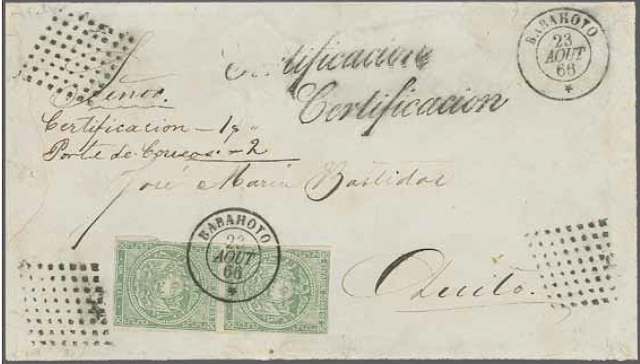 BABAHOYO
23
AOUT
66
Certificacion
Certificacion
Señor
Certificacion - 1
Porte de Correos - 2
José Maria Bastidas
BABAHOYO
23
AOUT
66
Quito.